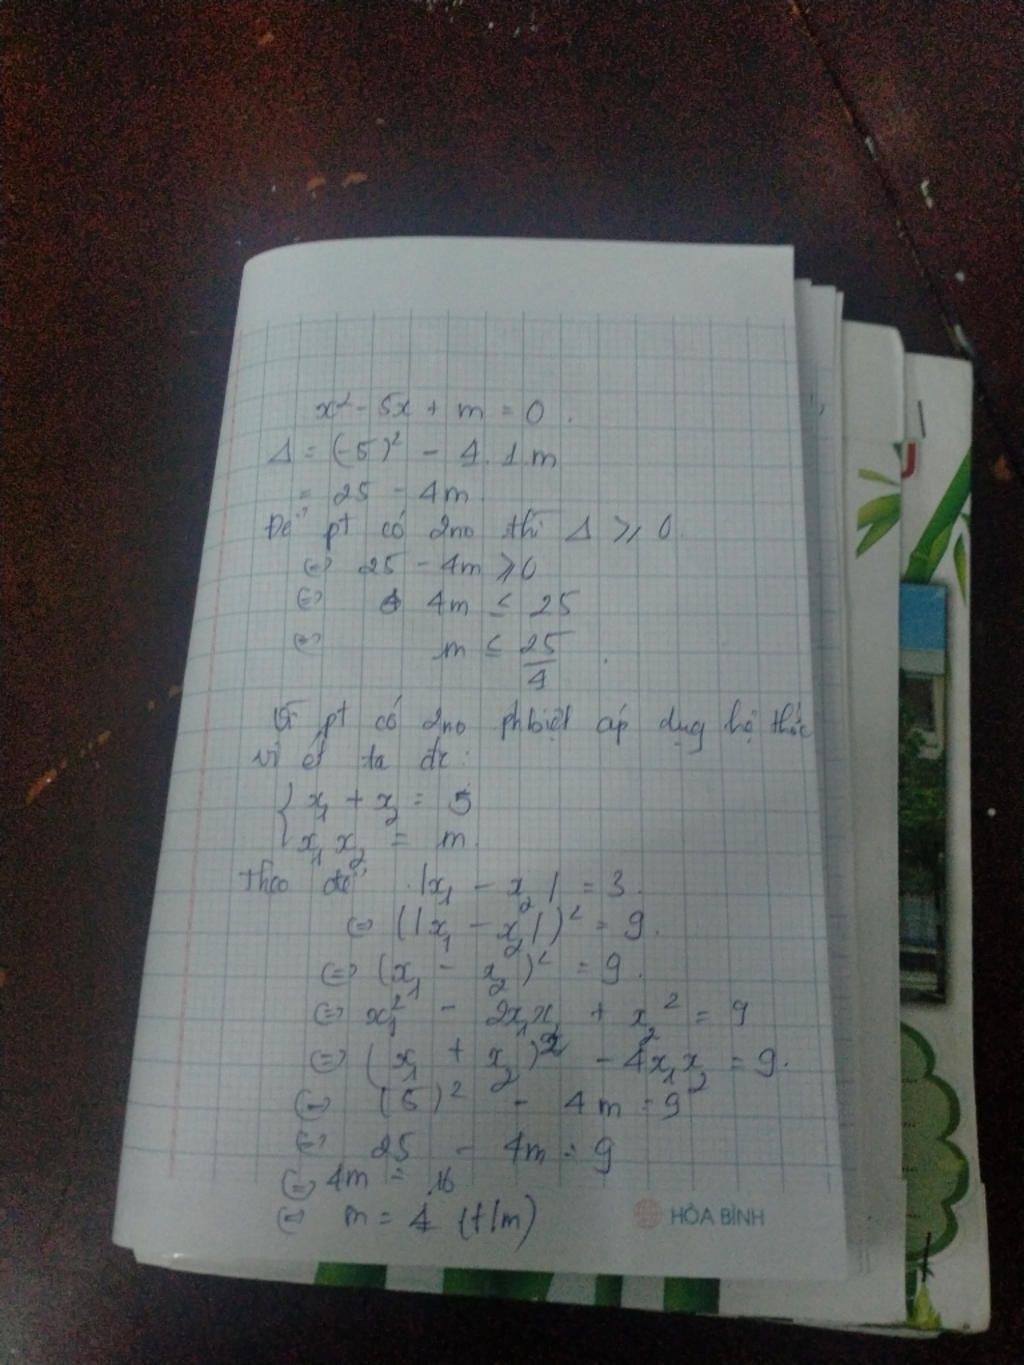 x² - 5x + m = 0.
Δ = (-5)² - 4.1.m
= 25 - 4m
Để pt có 2no thì Δ ⩾ 0.
⇔ 25 - 4m ⩾ 0
⇔ 4m ≤ 25
⇔ m ≤ 25/4.
Vì pt có 2no phbiệt áp dụng hệ thức
vi ét ta đc:
{ x₁ + x₂ = 5
x₁ x₂ = m.
Theo đề |x₁ - x₂| = 3.
⇔ (|x₁ - x₂|)² = 9.
⇔ (x₁ - x₂)² = 9.
⇔ x₁² - 2x₁x₂ + x₂² = 9
⇔ (x₁ + x₂)² - 4x₁x₂ = 9.
⇔ (5)² - 4m = 9
⇔ 25 - 4m = 9
⇔ 4m = 16
⇔ m = 4 (t/m)
HÒA BÌNH